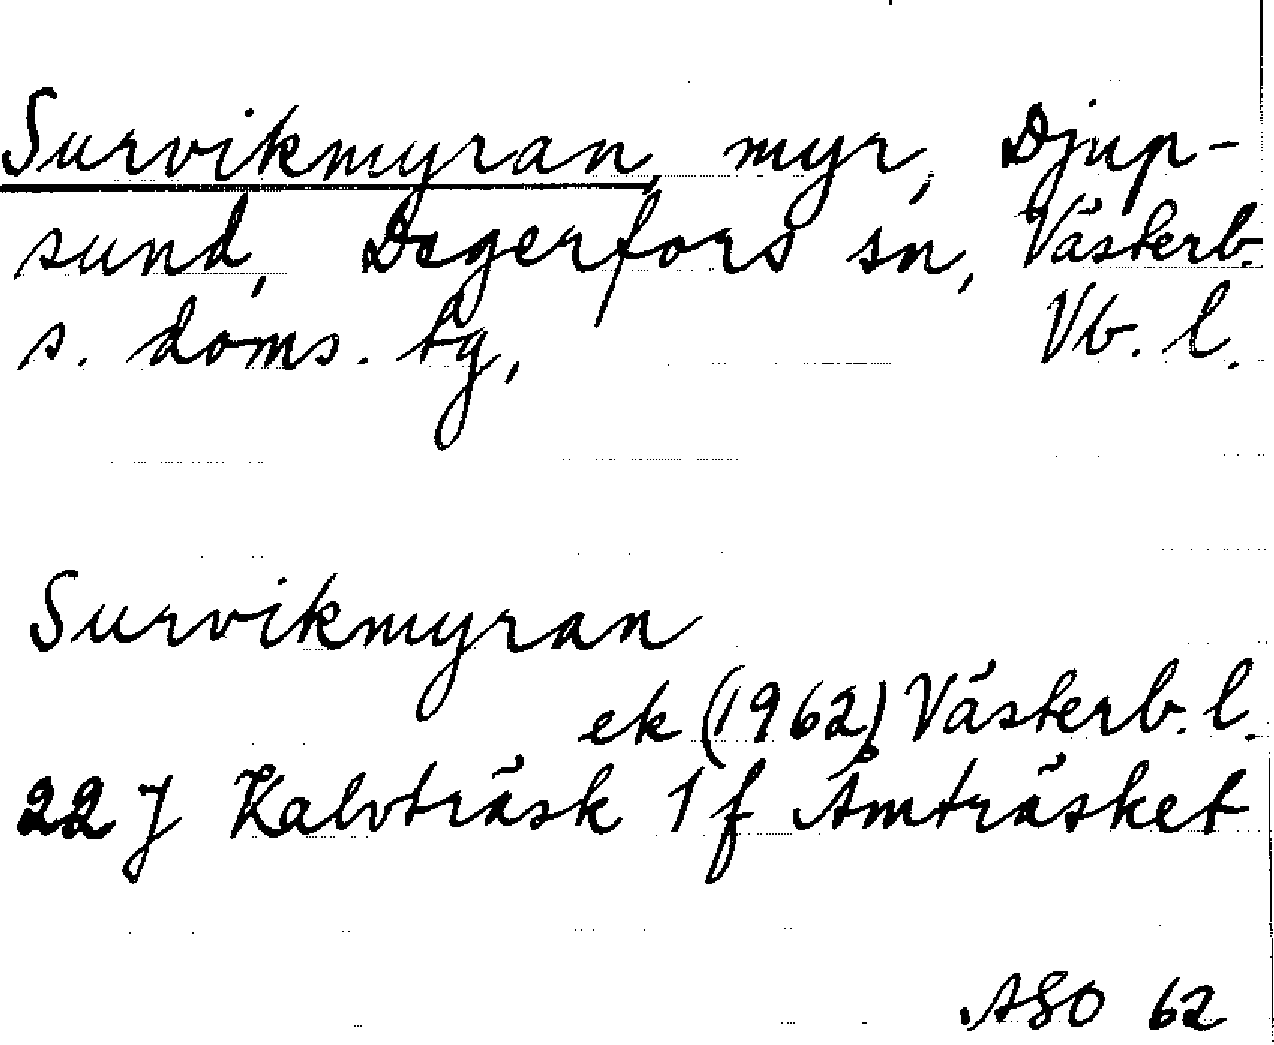 Survikmyran, myr, Djup-
sund, Degerfors sn, Västerb.
s. doms. tg, Vb. l.
Survikmyran
ek (1962) Västerb. l.
22 J Kalvträsk 1 f Åmträsket
ASO 62